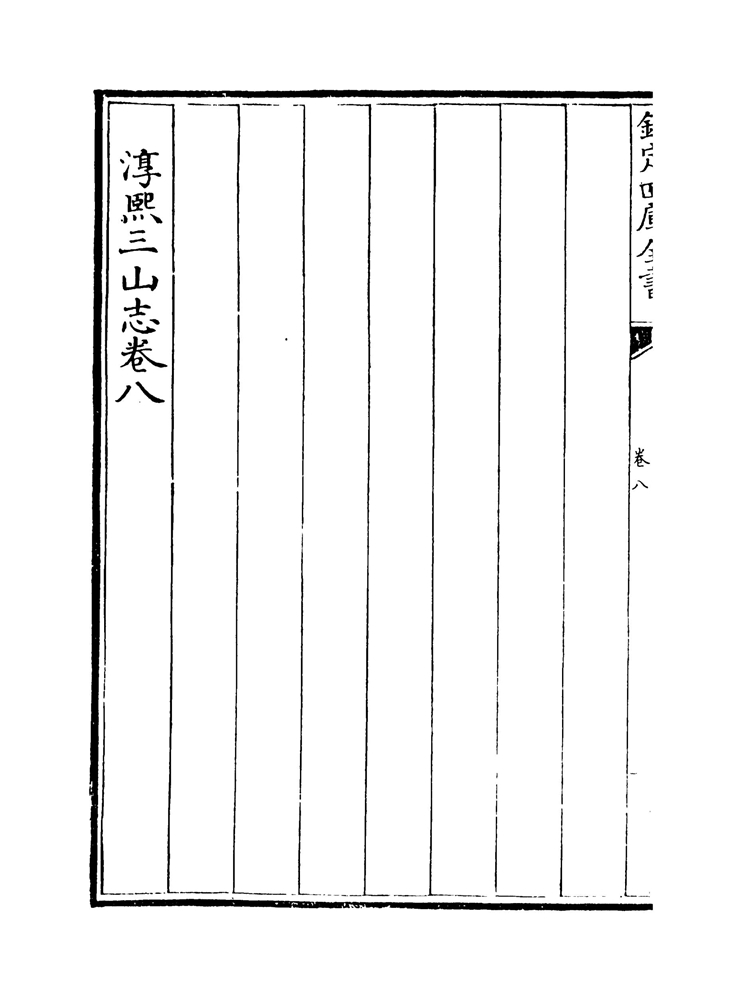 欽定四庫全書
卷八
淳熙三山志卷八